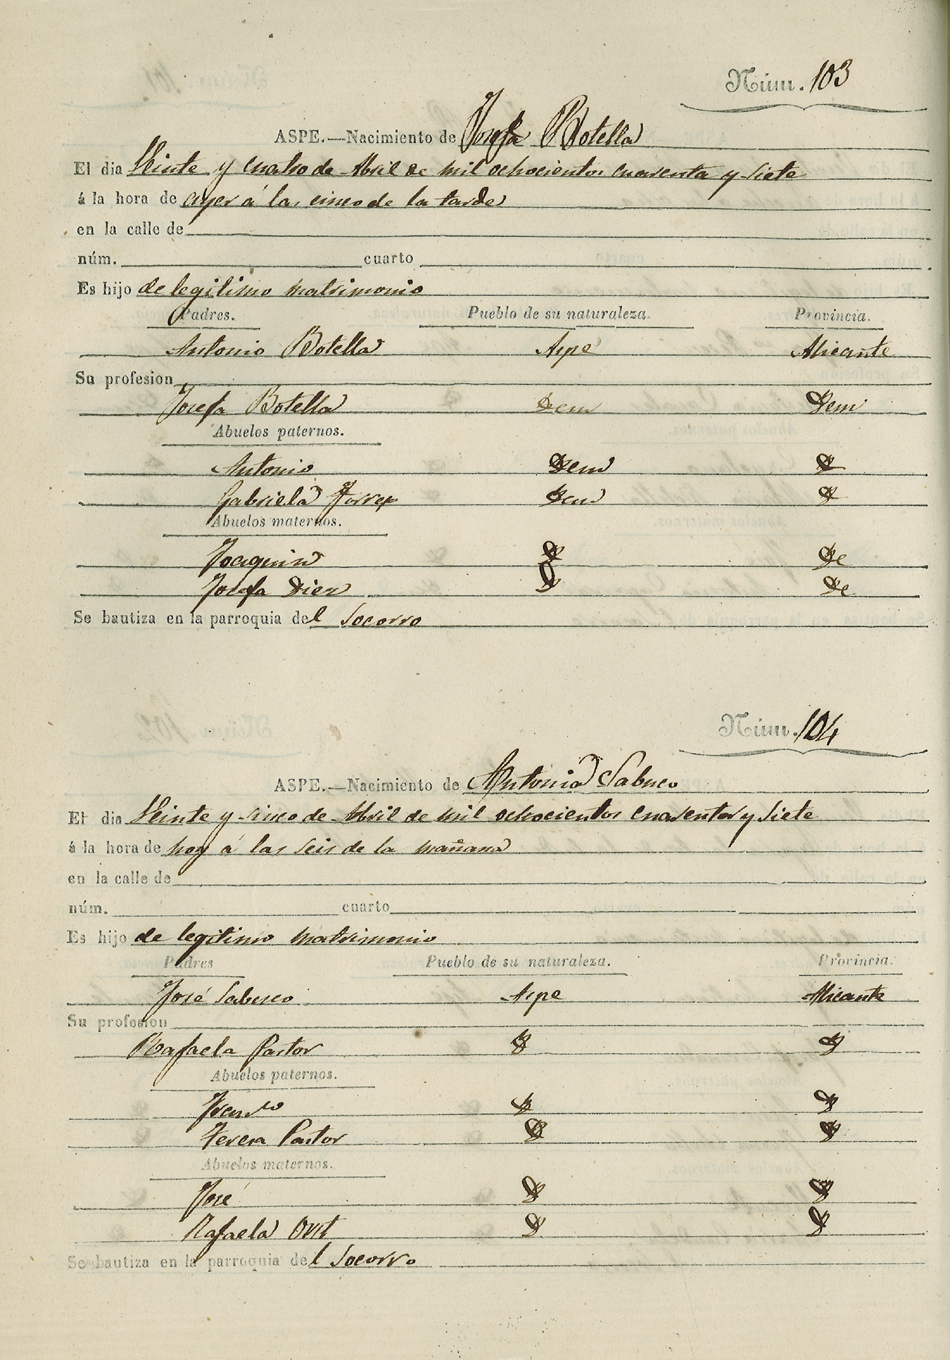 Núm. 103
ASPE.—Nacimiento de Josefa Botella
El dia Veinte y cuatro de Abril de mil ochocientos cuarenta y siete
á la hora de ayer á las cinco de la tarde
en la calle de
núm. cuarto
Es hijo de legitimo matrimonio
Padres. Pueblo de su naturaleza. Provincia.
Antonio Botella Aspe Alicante
Su profesion
Josefa Botella Idem Idem
Abuelos paternos.
Antonio Idem
Gabriela Torres Idem
Abuelos maternos.
Joaquin
Josefa Diez
Se bautiza en la parroquia del Socorro
Núm. 104
ASPE.—Nacimiento de Antonia Sabuco
El dia Veinte y cinco de Abril de mil ochocientos cuarenta y siete
á la hora de hoy á las seis de la mañana
en la calle de
núm. cuarto
Es hijo de legitimo matrimonio
Padres Pueblo de su naturaleza. Provincia.
José Sabuco Aspe Alicante
Su profesion
Rafaela Pastor
Abuelos paternos.
Teresa Pastor
Abuelos maternos.
José
Rafaela
Se bautiza en la parroquia del Socorro